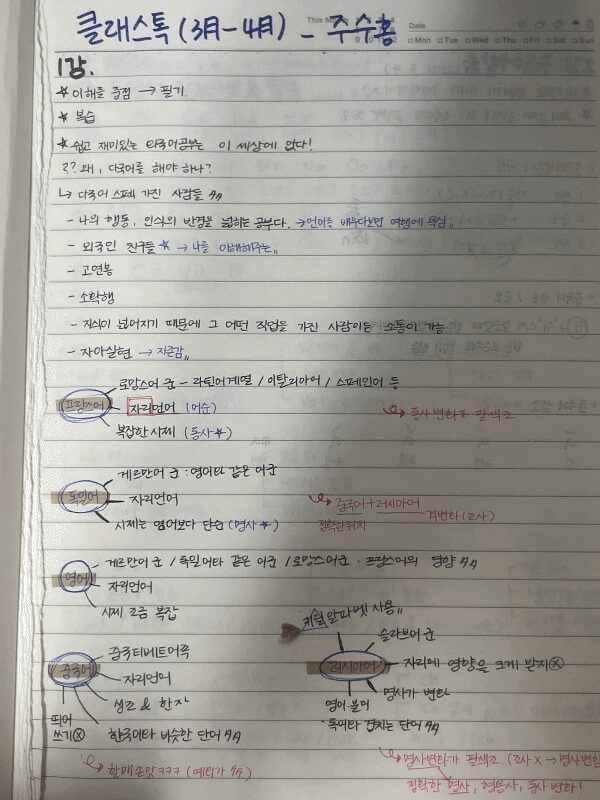 클래스톡 (3月-4月) - 주수홍
This M
Date
Mon Tue Wed Thu Fri Sat Sun
1강.
☆ 이해를 중점 → 필기
☆ 복습
☆ 쉽고 재미있는 외국어공부는 이 세상에 없다!
?? 왜, 다국어를 해야 하나?
↳ 다국어 스펙 가진 사람들 ↑↑
- 나의 행동, 인식의 반경을 넓히는 공부다. → 언어를 배우다보면 여행에 욕심"
- 외국인 친구들 ☆ → 나를 이해해주는"
- 고연봉
- 소확행
- 지식이 넓어지기 때문에 그 어떤 직업을 가진 사람이든 소통이 가능
- 자아실현 → 자존감"
프랑스어
로망스어 군 - 라틴어계열 / 이탈리아어 / 스페인어 등
자리언어 (어순)
복잡한 시제 (동사 ☆)
↳ 동사 변화가 팔색조
독일어
게르만어 군 : 영어와 같은 어군
자리언어
시제는 영어보다 단순 (명사 ☆)
↳ 중국어 + 러시아어
정확한 위치 격변화 (조사)
영어
게르만어 군 / 독일어와 같은 어군 / 로망스어군 · 프랑스어의 영향 ↑↑
자리언어
시제 조금 복잡
중국어
중국티베트어족
자리언어
성조 & 한자
한국어와 비슷한 단어 ↑↑
띄어쓰기 ⓧ
↳ 할매 손맛 ㅋㅋㅋ (예외가 ↑↑)
러시아어
키릴 알파벳 사용"
슬라브어 군
자리에 영향을 크게 받지 ⓧ
명사가 변화
영어·불어
· 독어와 겹치는 단어 ↑↑
↳ 명사변화가 팔색조 (조사 X → 명사변화
정확한 명사, 형용사, 동사 변화!